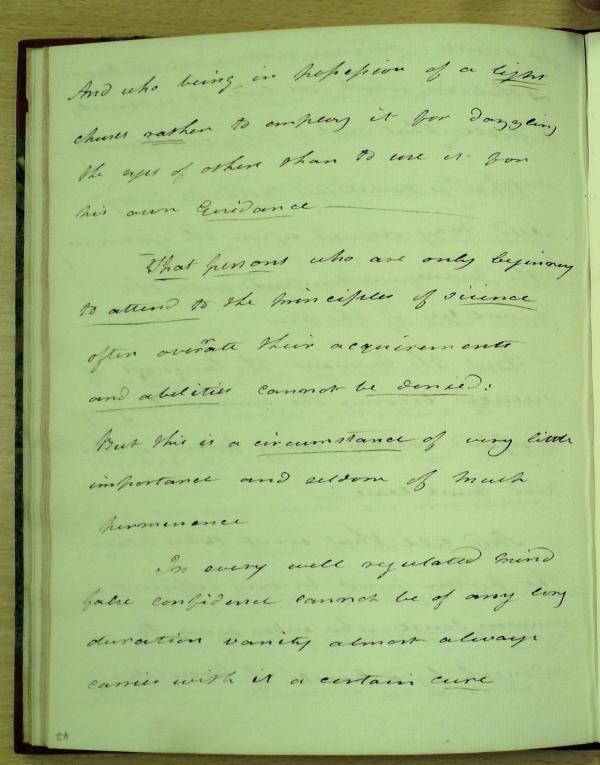 And who being in possession of a light
chuses rather to employ it for dazzling
the eyes of others than to use it for
his own Guidance
That persons who are only beginning
to attend to the principles of science
often overrate their acquirements
and abilities cannot be denied:
But this is a circumstance of very little
importance and seldom of much
permenence
In every well regulated mind
false confidence cannot be of any long
duration vanity almost always
carries with it a certain cure
42